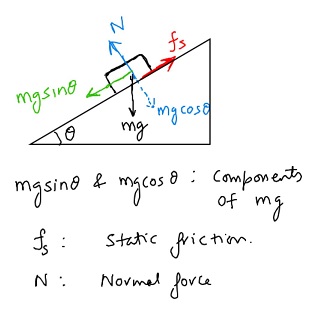 N
fs
mgsinθ
mgcosθ
θ
mg
mgsinθ & mgcosθ : components
of mg
fs : Static friction.
N : Normal force